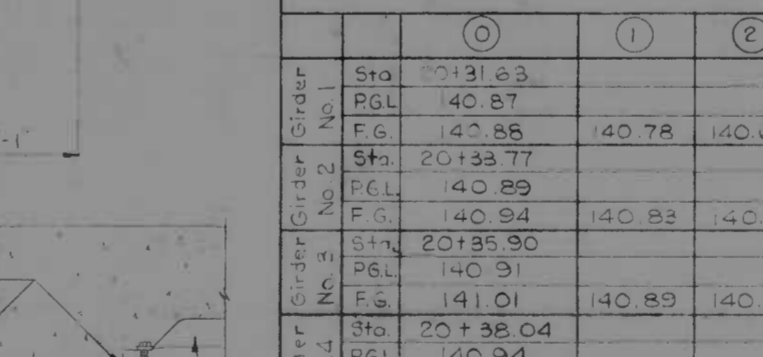 0 1 2
Girder No. 1
Sta 20+31.63
P.G.L 140.87
F.G. 140.88 140.78 140.
Girder No. 2
Sta. 20+33.77
P.G.L. 140.89
F.G. 140.94 140.83 140.
Girder No. 3
Sta. 20+35.90
PG.L. 140.91
F.G. 141.01 140.89 140.
4
Sta. 20+38.04
PGL 140.94
-1